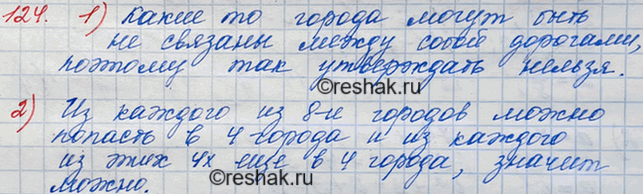 124. 1) Какие то города могут быть
не связаны между собой дорогами,
поэтому так утверждать нельзя.
2) Из каждого из 8-и городов можно
попасть в 4 города и из каждого
из этих 4х еще в 4 города, значит
можно.
©reshak.ru